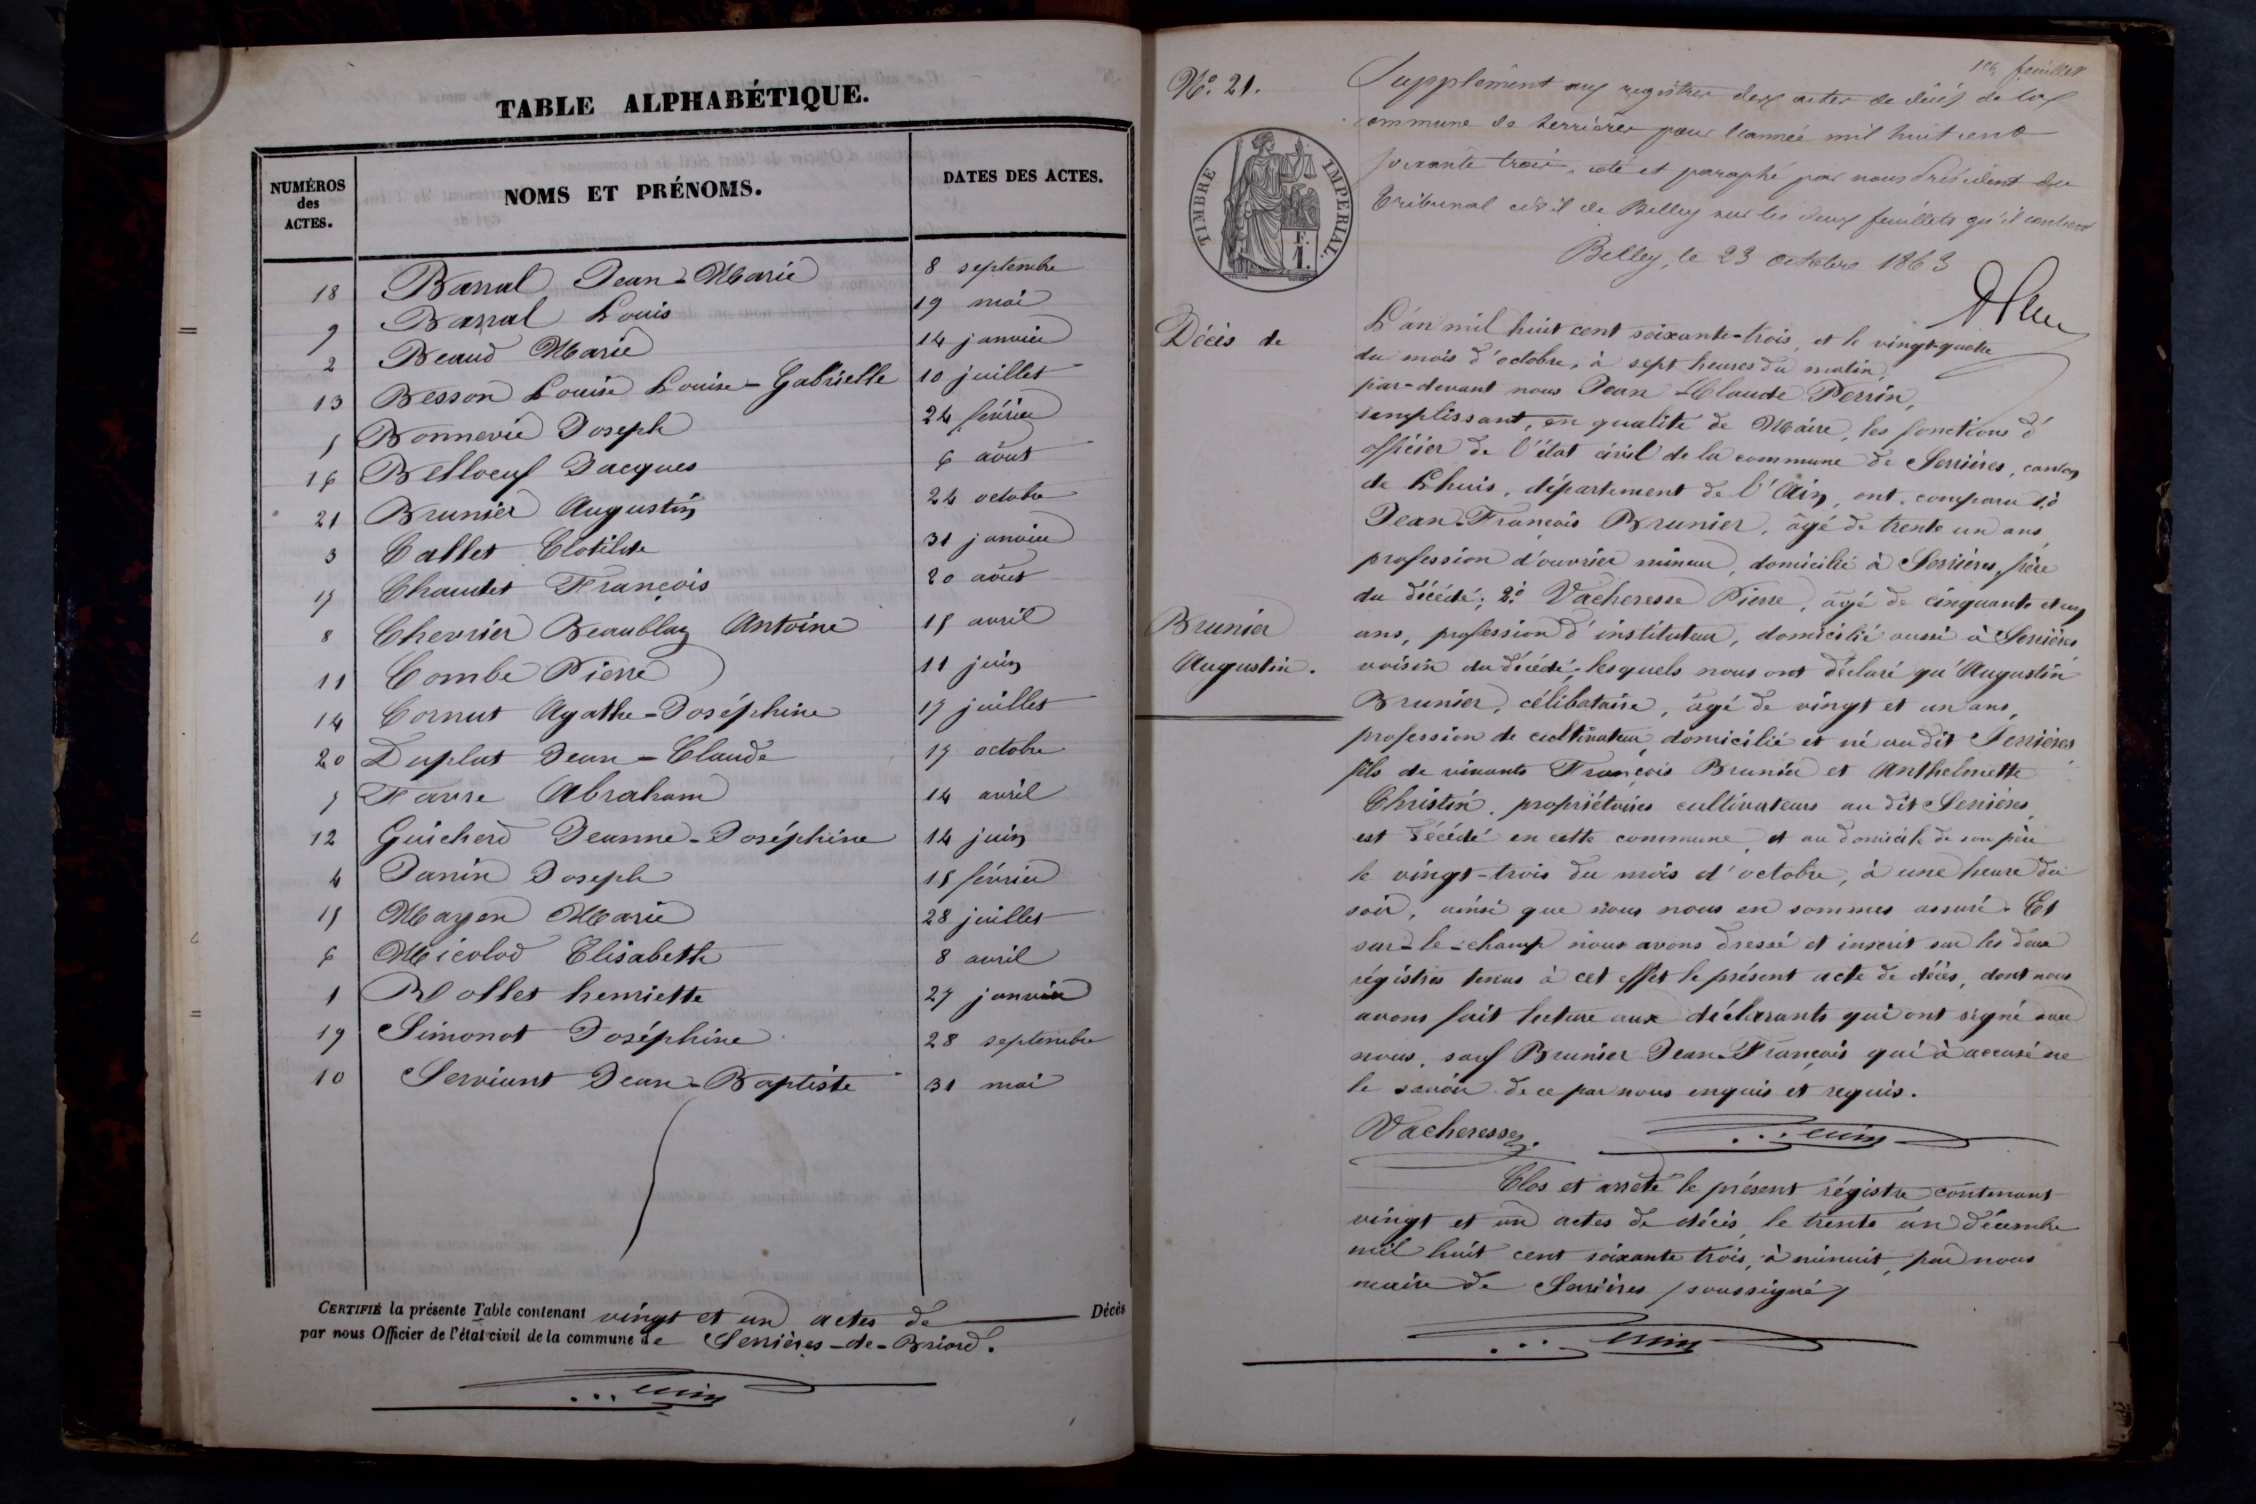 TABLE ALPHABÉTIQUE.
NUMÉROS des ACTES.
NOMS ET PRÉNOMS.
DATES DES ACTES.
18 Barral Jean-Marie 8 septembre
9 Barral Louis 19 mai
2 Beaud Marie 14 janvier
13 Besson Louise Louise-Gabrielle 10 juillet
5 Bonnevie Joseph 24 février
16 Belloeuf Jacques 6 août
21 Brunier Augustin 24 octobre
3 Callet Clotilde 31 janvier
17 Chaudet François 20 août
8 Chevrier Beaublay Antoine 15 avril
11 Combe Pierre 11 juin
14 Cornut Agathe-Joséphine 17 juillet
20 Duplat Jean-Claude 17 octobre
7 Favre Abraham 14 avril
12 Guicherd Jeanne-Joséphine 14 juin
4 Janin Joseph 15 février
15 Mayen Marie 28 juillet
6 Micolod Elisabeth 8 avril
1 Rollet henriette 27 janvier
19 Simonot Joséphine 28 septembre
10 Serviant Jean-Baptiste 31 mai
CERTIFIÉ la présente Table contenant vingt et un actes de Décès
par nous Officier de l'état civil de la commune de Serrières-de-Briord.
1er feuillet
N° 21.
Supplément aux registres des actes de décès de la
commune de Serrières pour l'année mil huit cent
soixante trois, coté et paraphé par nous Président du
Tribunal civil de Belley sur les deux feuillets qu'il contient
Belley, le 23 octobre 1863
TIMBRE IMPERIAL.
F. 1.
Décès de
Brunier
Augustin.
L'an mil huit cent soixante-trois, et le vingt-quatre
du mois d'octobre, à sept heures du matin,
par-devant nous Jean-Claude Perrin,
remplissant, en qualité de Maire, les fonctions d'
officier de l'état civil de la commune de Serrières, canton
de Lhuis, département de l'Ain, ont comparu 1°
Jean-François Brunier, âgé de trente un ans,
profession d'ouvrier mineur, domicilié à Serrières, frère
du décédé; 2° Vacheresse Pierre, âgé de cinquante et un
ans, profession d'instituteur, domicilié aussi à Serrières
voisin du décédé; lesquels nous ont déclaré qu'Augustin
Brunier, célibataire, âgé de vingt et un ans,
profession de cultivateur, domicilié et né au dit Serrières
fils de vivants François Brunier et Anthelmette
Christin, propriétaires cultivateurs au dit Serrières,
est décédé en cette commune et au domicile de son père
le vingt-trois du mois d'octobre, à une heure du
soir, ainsi que nous nous en sommes assuré. Et
sur-le-champ nous avons dressé et inscrit sur les deux
régistres tenus à cet effet le présent acte de décès, dont nous
avons fait lecture aux déclarants qui ont signé avec
nous, sauf Brunier Jean-François qui à accusé ne
le savoir de ce par nous enquis et requis.
Vacheresse.
Clos et arrêté le présent régistre contenant
vingt et un actes de décès, le trente un décembre
mil huit cent soixante trois, à minuit, par nous
maire de Serrières soussigné